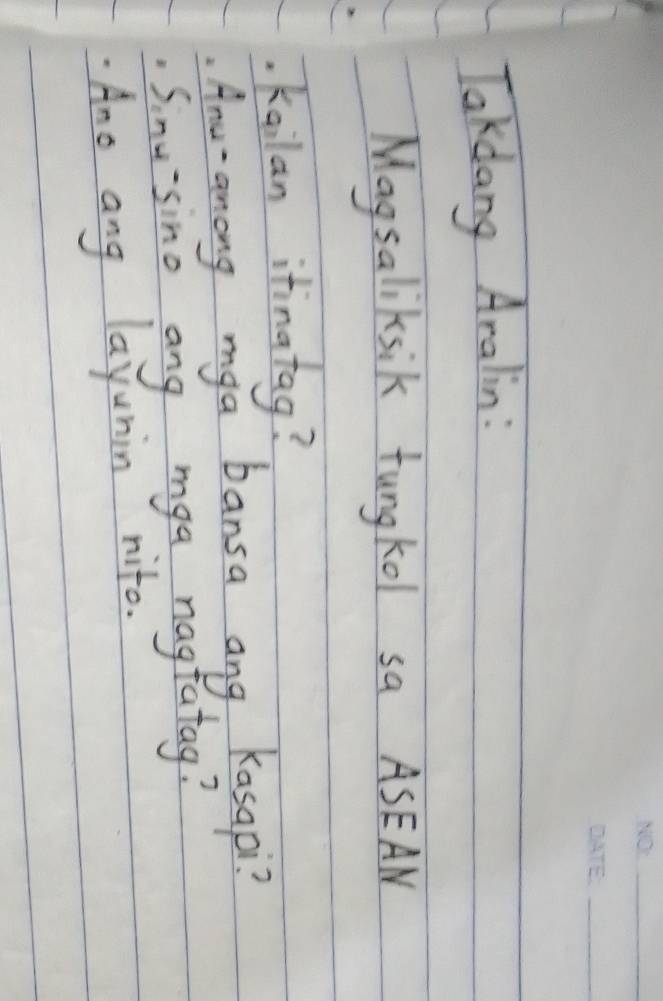 NO:
DATE:
Takdang Aralin:
Magsaliksik tungkol sa ASEAN
• Kailan itinatag?
• Anu-anong mga bansa ang kasapi?
• Sinu-sino ang mga nagtatag?
• Ano ang layunin nito.